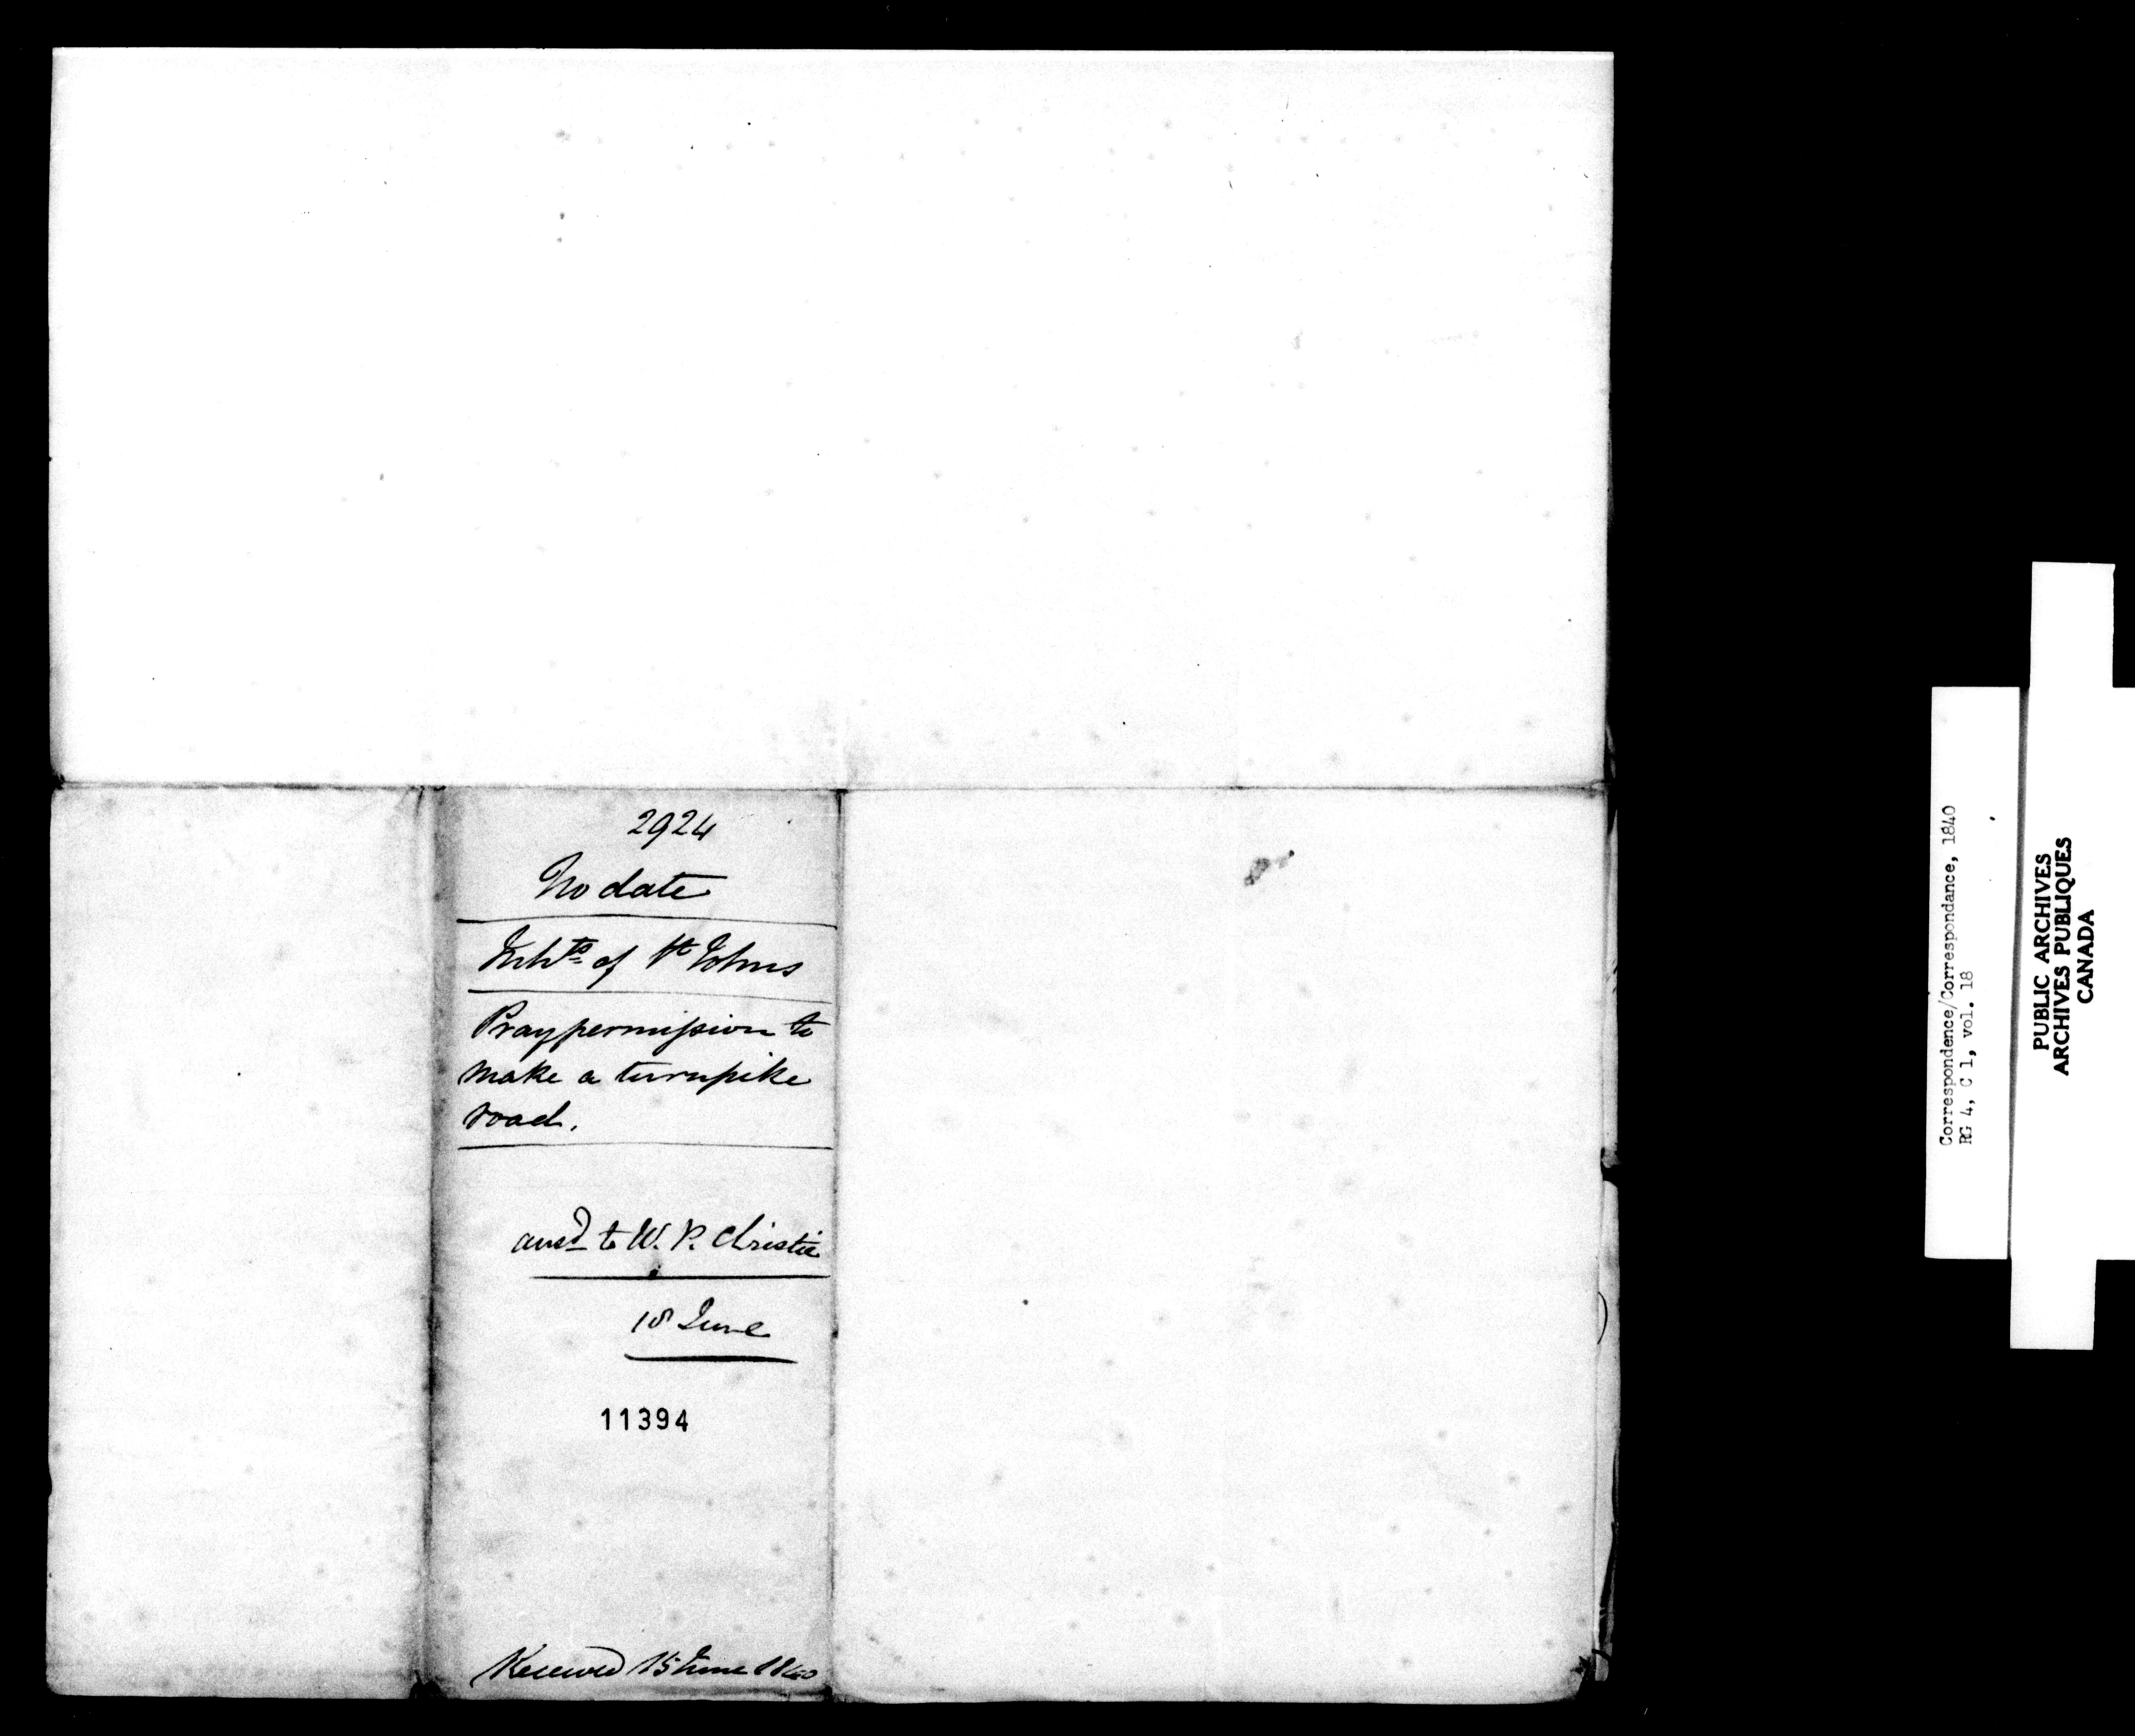 2924
No date
Inhts of St Johns
Pray permission to
make a turnpike
road.
ansd to W. P. Christie
18 June
11394
Received 15 June 1840
Correspondence/Correspondance, 1840
RG 4, C 1, vol. 18
PUBLIC ARCHIVES
ARCHIVES PUBLIQUES
CANADA